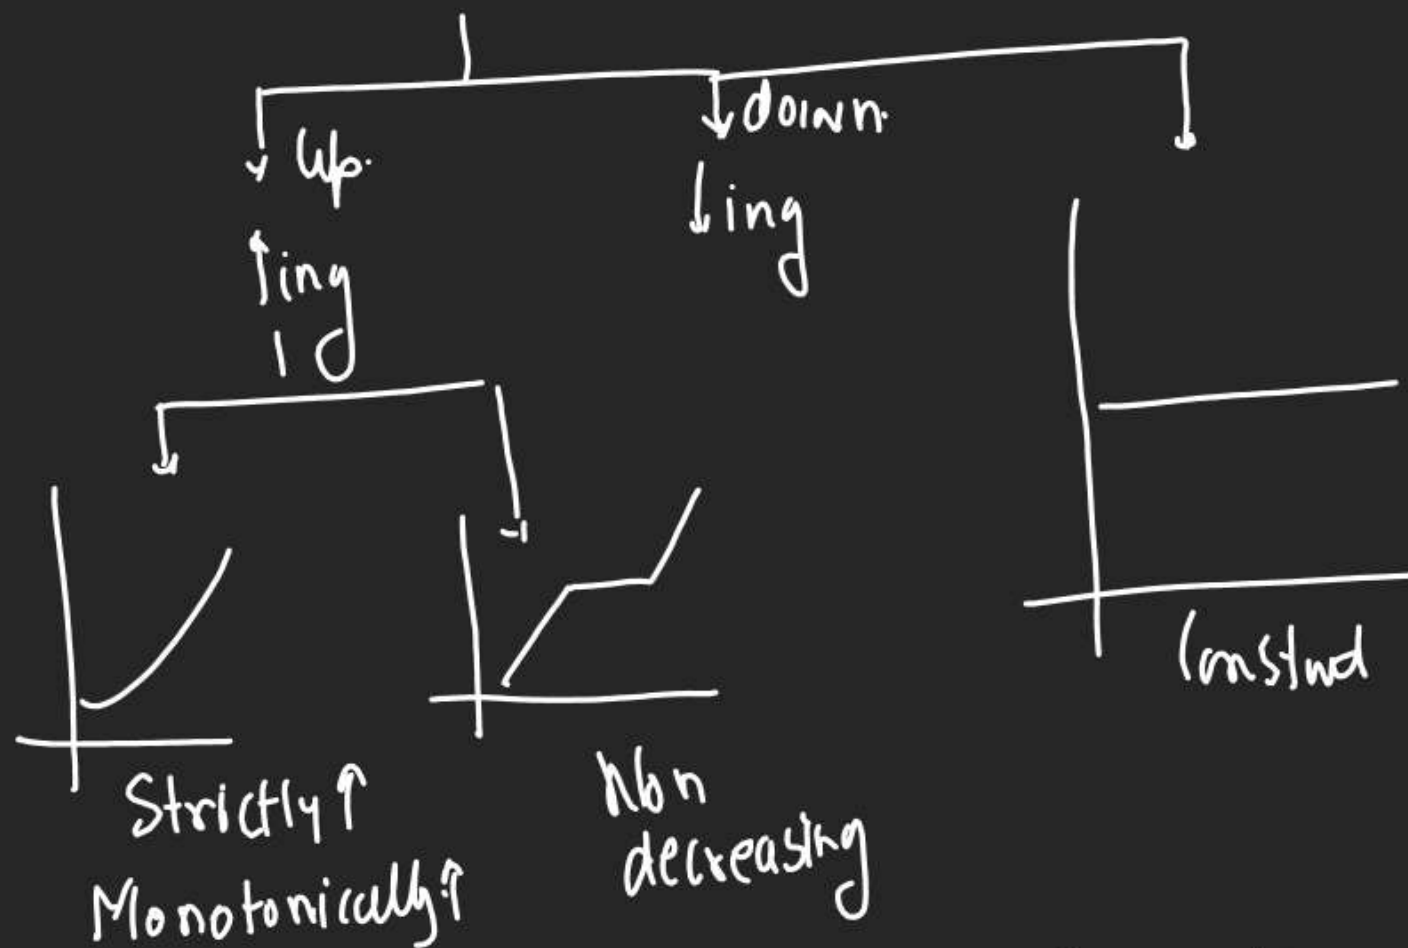 Up.
↓ down.
↑ing
↓ing
Strictly ↑
Monotonically ↑
Non
decreasing